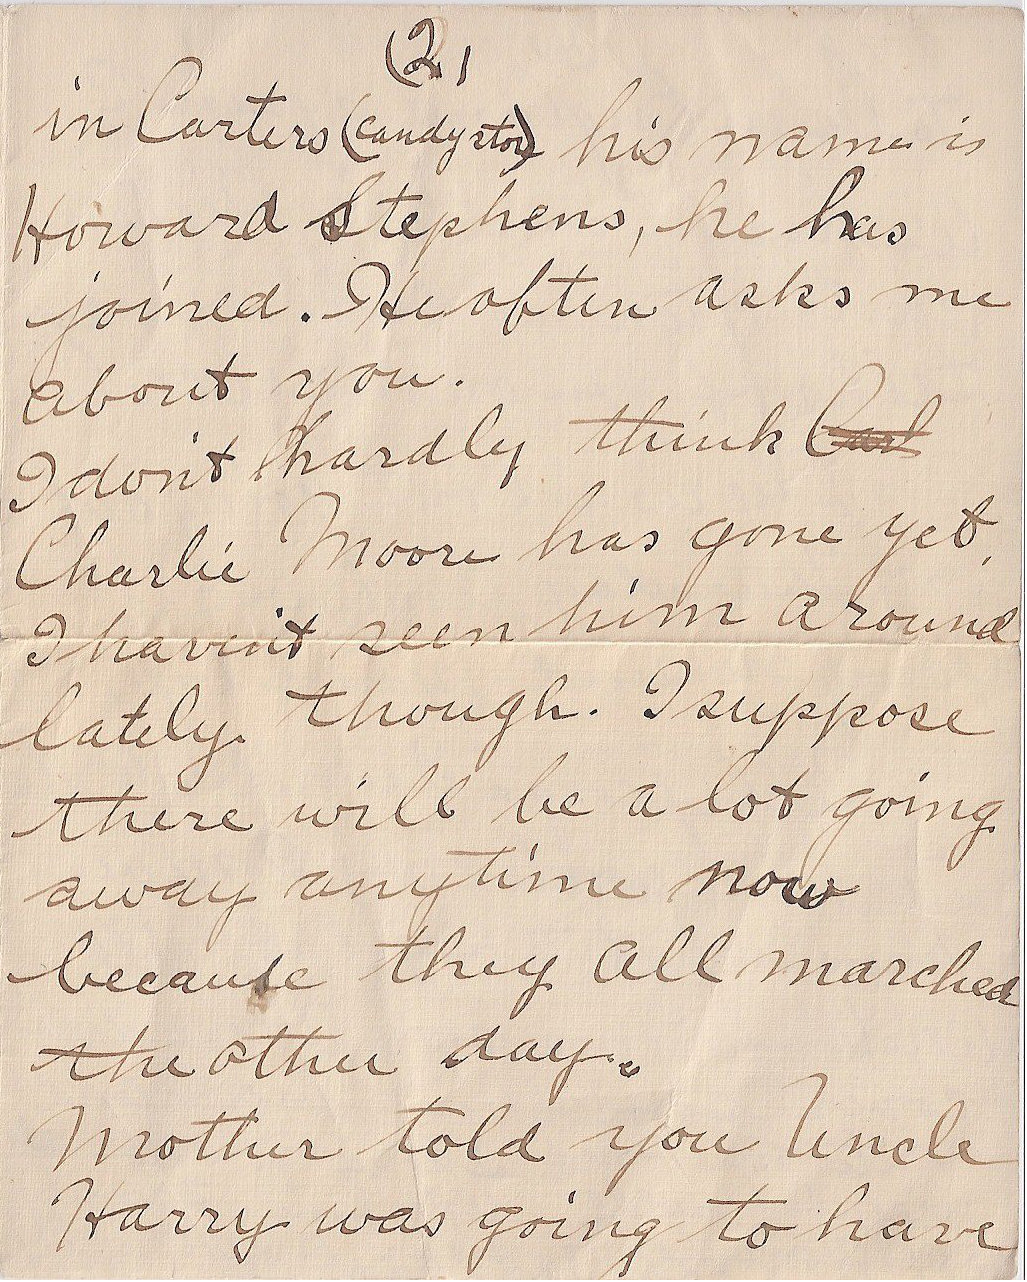 (2)
in Carters (candy stor) his name is
Howard Stephens, he has
joined. He often asks me
about you.
I don't hardly think Carl
Charlie Moore has gone yet.
I haven't seen him around
lately though. I suppose
there will be a lot going
away anytime now
because they all marched
the other day.
Mother told you Uncle
Harry was going to have